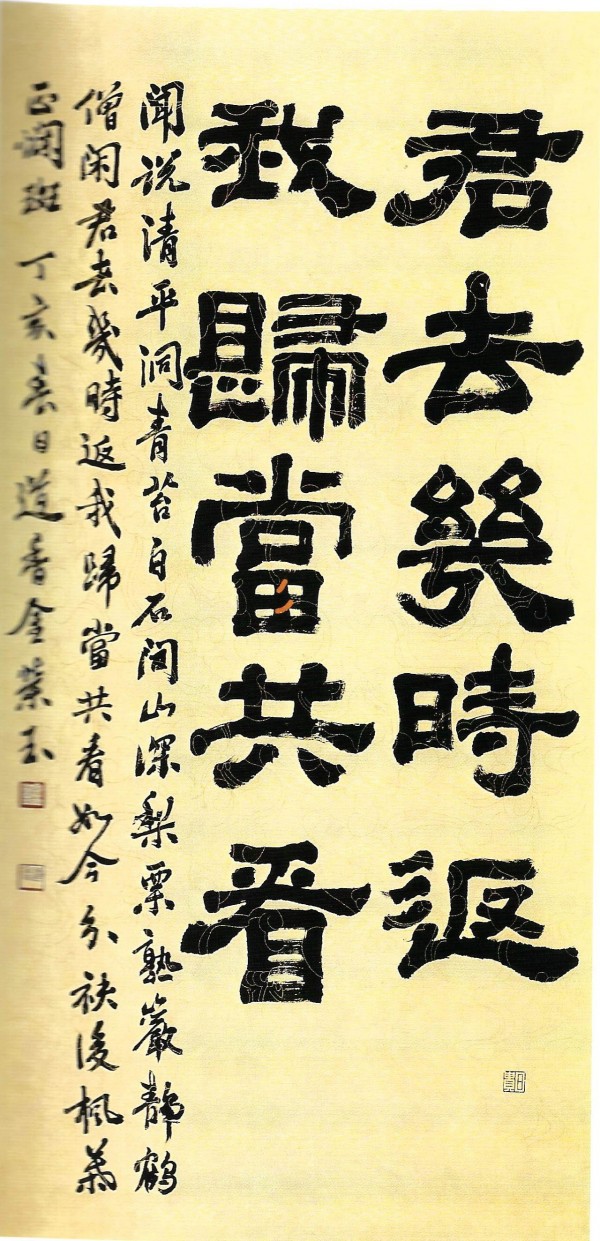 君去幾時返
我歸當共看
聞説清平洞青苔白石间山深梨栗熟巖静鶴
僧闲君去幾時返我歸當共看如今分袂後楓葉
正斕斑 丁亥春日道香金榮玉